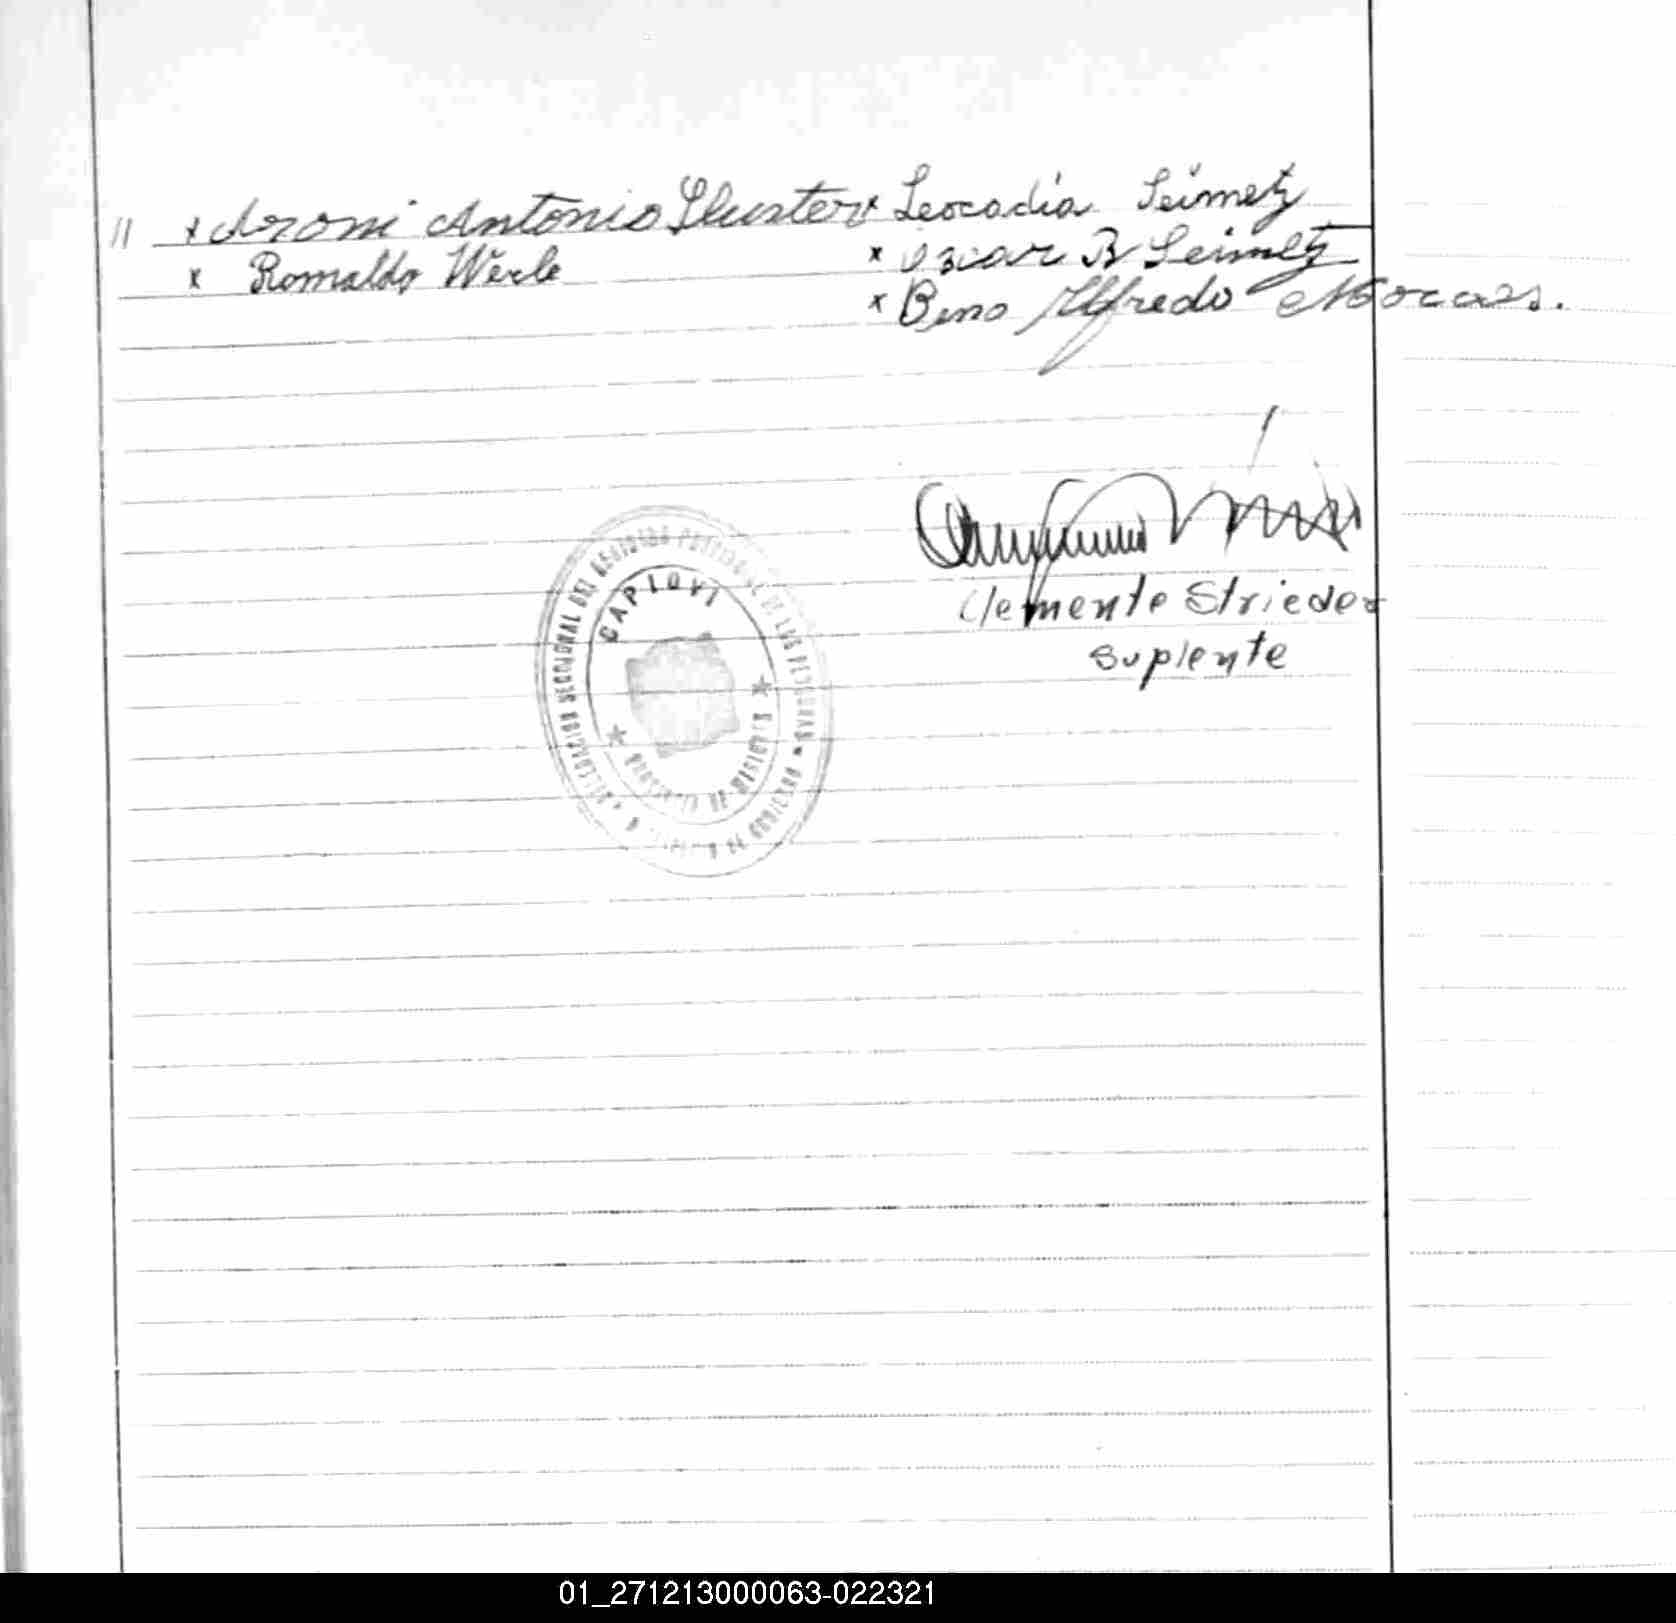 11 x Aroni Antonio Shuster x Leocadia Seimetz
x Romaldo Werle x Oscar B Seimetz
x Beno Alfredo
Clemente Strieder
Suplente
DELEGACION SECCIONAL DEL REGISTRO PROVINCIAL DE LAS PERSONAS
CAPIOVI
PROVINCIA DE MISIONES
01_271213000063-022321